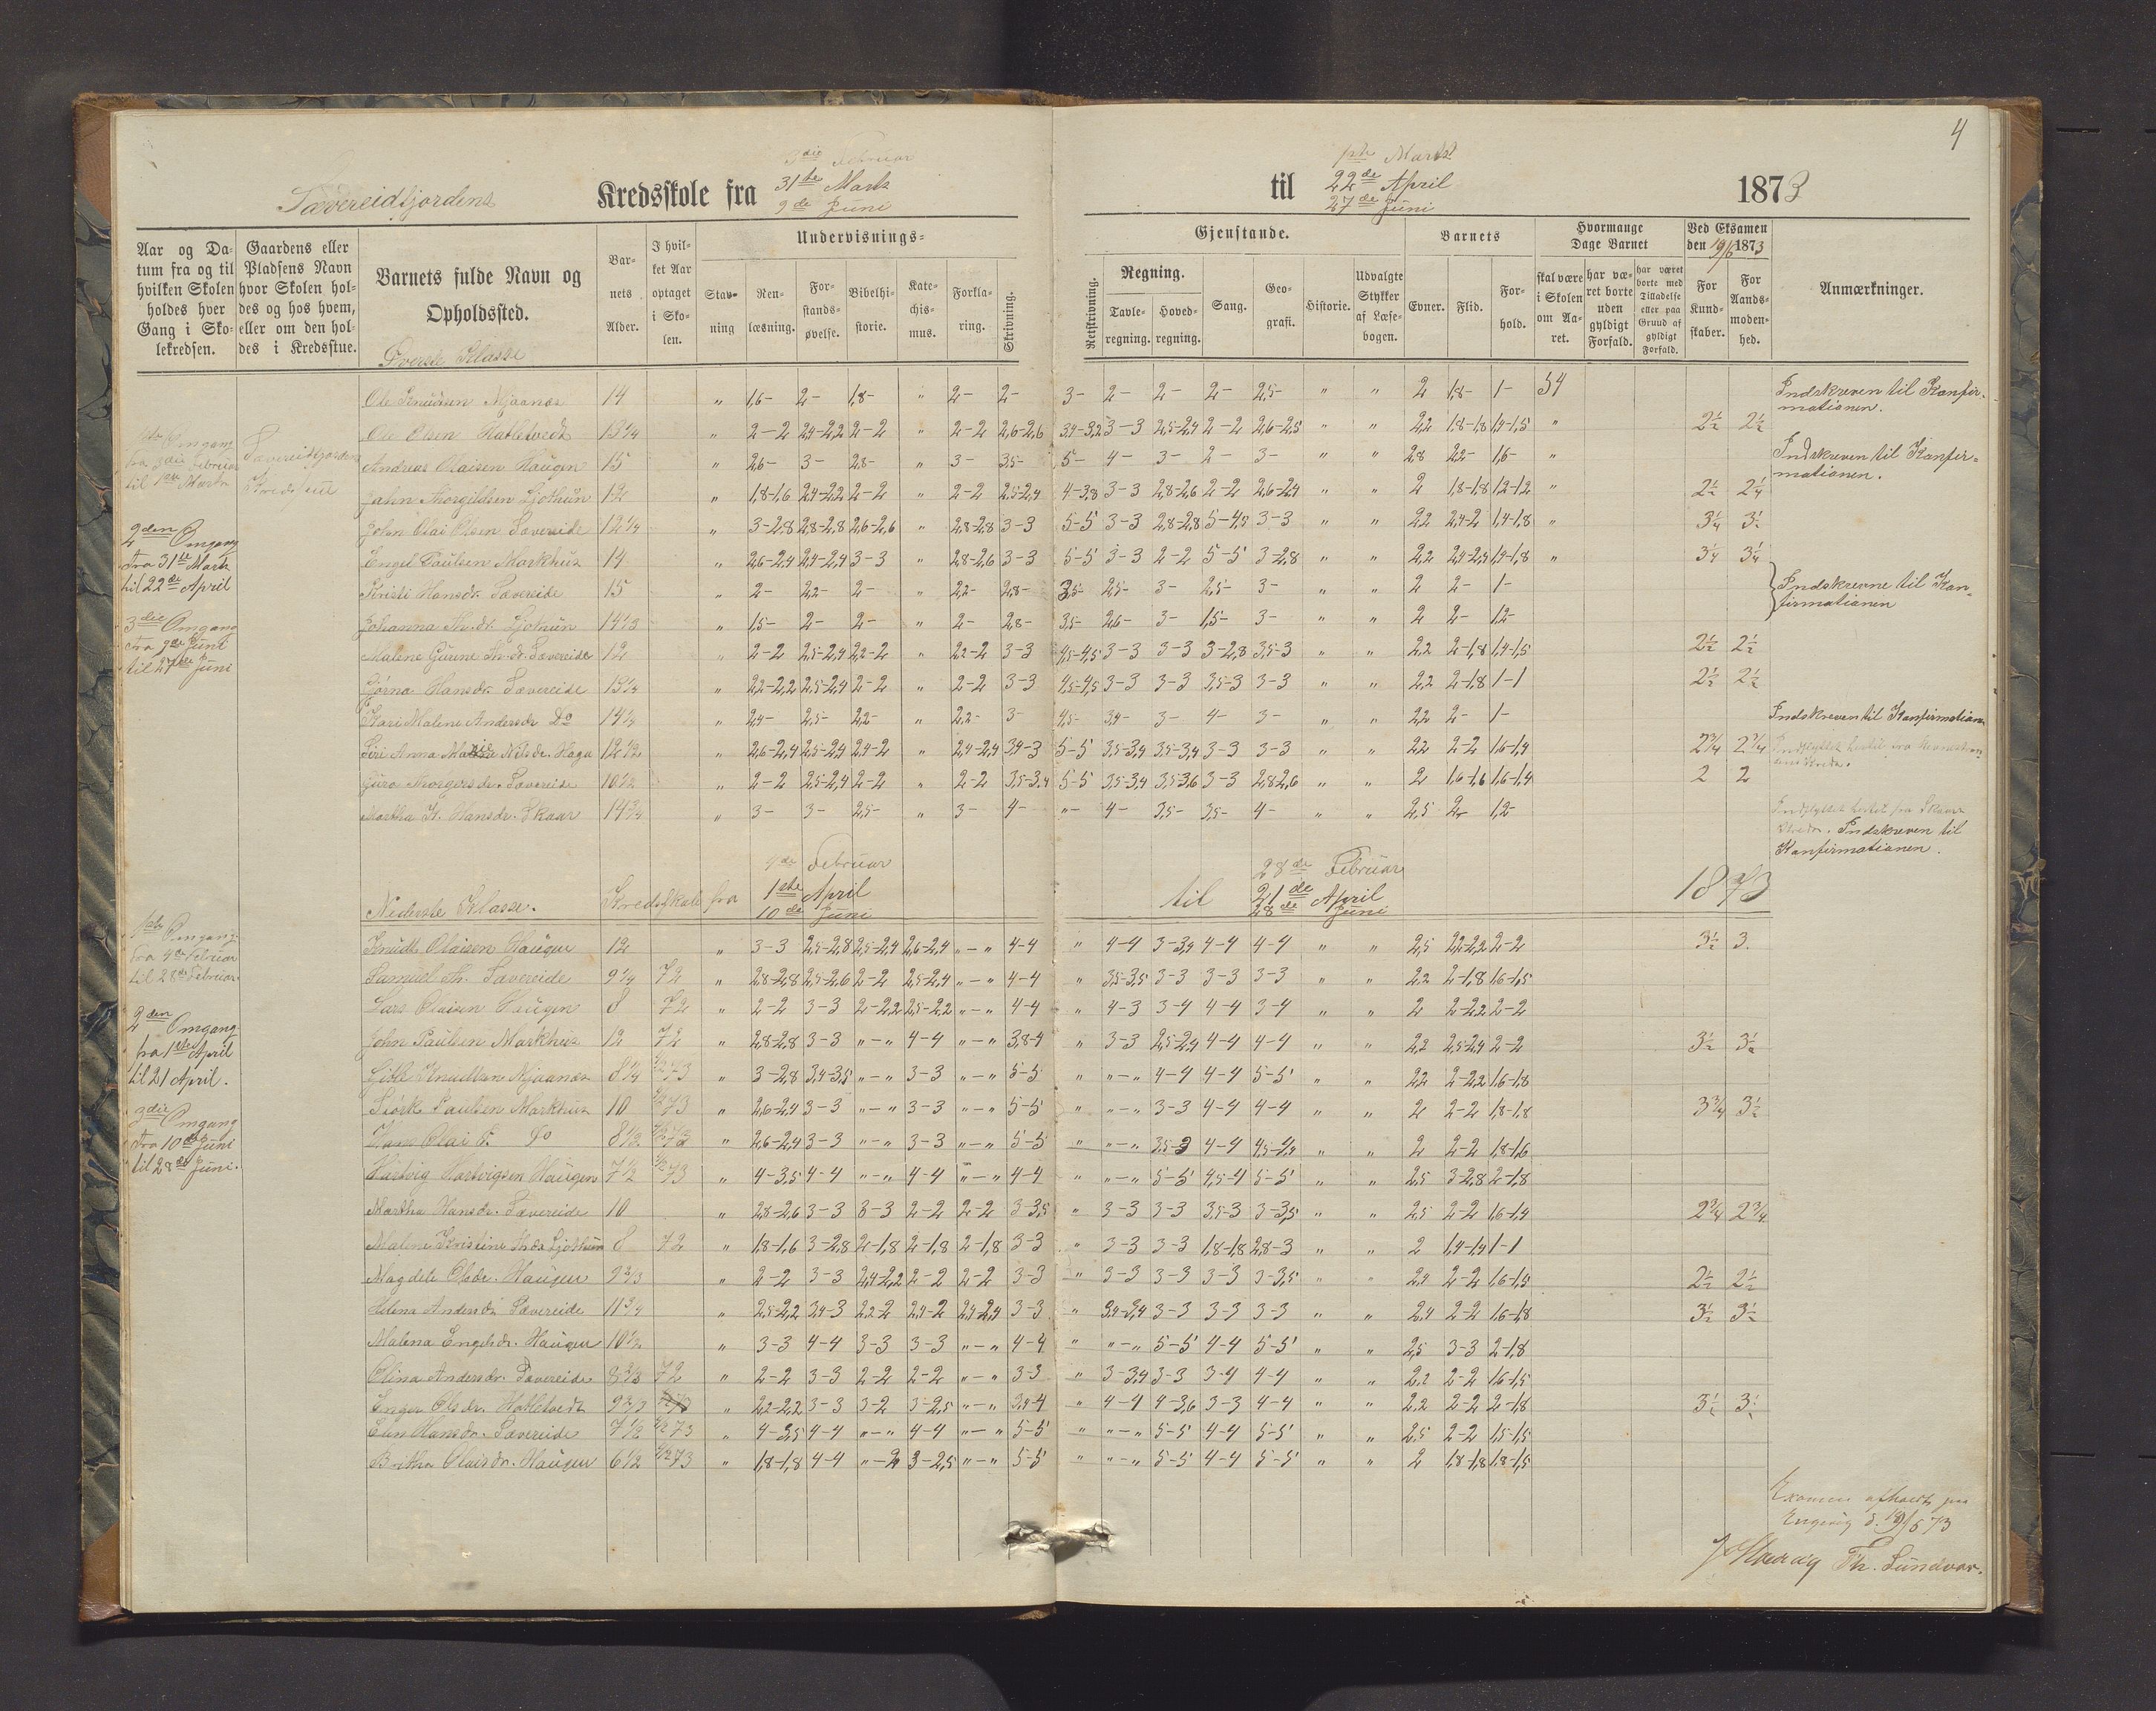 4
Sævereidfjordens Kredsskole fra
3die Februar
31te Marts
9de Juni
til
1ste Marts
22de April
27de Juni
1873
Aar og Da-
tum fra og til
hvilken Skolen
holdes hver
Gang i Sko-
lekredsen.
Gaardens eller
Pladsens Navn
hvor Skolen hol-
des og hos hvem,
eller om den hol-
des i Kredsstue.
Barnets fulde Navn og
Opholdssted.
Øverste Klasse
Bar-
nets
Alder.
I hvil-
ket Aar
optaget
i Sko-
len.
Undervisnings-
Stav-
ning
Ren-
læsning.
For-
stands-
øvelse.
Bibelhi-
storie.
Kate-
chis-
mus.
Forkla-
ring.
Skrivning.
Gjenstande.
Retskrivning.
Regning.
Tavle-
regning.
Hoved-
regning.
Sang.
Geo-
grafi.
Historie.
Udvalgte
Stykker
af Læse-
bogen.
Barnets
Evner.
Flid.
For-
hold.
Hvormange
Dage Barnet
skal være
i Skolen
om Aa-
ret.
har væ-
ret borte
uden
gyldigt
Forfald.
har været
borte med
Tilladelse
eller paa
Grund af
gyldigt
Forfald.
Ved Eksamen
den 19/6 1873
For
Kund-
skaber.
For
Aands-
moden-
hed.
Anmærkninger.
1ste Omgang
fra 3die Februar
til 1ste Marts
Sævereidfjordens
Kredsstue
2den Omgang
fra 31te Marts
til 22de April
3die Omgang
fra 9de Juni
til 27de Juni
Ole Knudsen Mjaanæs 14 " 1,6- 2- 1,8- " 2- 2- 3- 2- 2- 2- 2,5- " " 2 1,8- 1- 54 Indskreven til Konfir-
mationen.
Ole Olsen Hatletvedt 13 1/4 " 2-2 2,4-2,2 2-2 " 2-2 2,6-2,6 3,4-3,2 3-3 2,5-2,4 2-2 2,6-2,5 " " 2,2 1,8-1,8 1,4-1,5 " 2 1/2 2 1/2
Andreas Olaisen Haugen 15 " 2,6- 3- 2,8- " 3- 3,5- 5- 4- 3- 2- 3- " " 2,8 2,2- 1,6- " Indskreven til Konfir-
mationen.
John Thorgildsen Ljothun 12 " 1,8-1,6 2,4-2,2 2-2 " 2-2 2,5-2,4 4-3,8 3-3 2,8-2,6 2-2 2,6-2,4 " " 2 1,8-1,8 1,2-1,2 " 2 1/2 2 1/4
John Olai Olsen Sævereide 12 1/4 " 3-2,8 2,8-2,8 2,6-2,6 " 2,8-2,8 3-3 5-5 3-3 2,8-2,8 5-4,5 3-3 " " 2,2 2,4-2 1,4-1,8 " 3 1/4 3 1/2
Engel Paulsen Markhus 14 " 2,6-2,4 2,4-2,4 3-3 " 2,8-2,6 3-3 5-5 3-3 2-2 5-5 3-2,8 " " 2,2 2,4-2,4 1,4-1,8 " 3 1/4 3 1/4
Kristi Hansdr. Sævereide 15 " 2- 2,2- 2- " 2,2- 2,8- 3,5- 2,5- 3- 2,5- 3- " " 2 2- 1- Indskrevne til Kon-
firmationen
Johanna Th.dr. Ljothun 14 1/3 " 1,5- 2- 2- " 2- 2,8- 3,5- 2,6- 3- 1,5- 3- " " 2 2- 1,2-
Malene Gurine Th.dr. Sævereide 12 " 2-2 2,5-2,4 2,2-2 " 2,2-2 3-3 4,5-4,5 3-3 3-3 3-2,8 3,5-3 " " 2,2 2-1,8 1,4-1,5 2 1/2 2 1/2
Gjørna Hansdr. Sævereide 13 1/4 " 2,2-2,2 2,5-2,4 2-2 " 2-2 3-3 4,5-4,5 3-3 3-3 3,5-3 3-3 " " 2,2 2-1,8 1-1 2 1/2 2 1/2
Kari Malene Andersdr Do 14 1/2 " 2,4- 2,5- 2,2- " 2,2- 3- 4,5- 3,4- 3- 4- 3- " " 2,2 2- 1- Indskreven til Konfirmation
Siri Anna Maria Nilsdr. Haga 12 1/2 " 2,6-2,4 2,5-2,4 2,4-2 " 2,4-2,4 3,4-3 5-5 3,5-3,4 3,5-3,4 3-3 3-3 " " 2,2 2-2 1,6-1,4 2 3/4 2 3/4
Guro Thorgersdr. Sævereide 10 1/2 " 2-2 2,5-2,4 2-2 " 2-2 3,5-3,4 5-5 3,5-3,4 3,5-3,6 3-3 2,8-2,6 " " 2 1,6-1,6 1,6-1,4 2 2
Martha K. Hansdr. Skaar 14 3/4 " 3- 3- 2,5- " 3- 4- "- 4- 3,5- 3,5- 4- " " 2,5 2- 1,2- Indflyttet hertil fra Skaar
Kreds. Indskreven til
Konfirmationen.
Nederste Klasse. Kredsskole fra
4de Februar
1ste April
10de Juni
til
28de Februar
21de April
28de Juni
1873
1ste Omgang
fra 4de Februar
til 28de Februar
2den Omgang
fra 1ste April
til 21 April.
3die Omgang
fra 10de Juni
til 28de Juni.
Knudt Olaisen Haugen 12 " 3-3 2,5-2,8 2,5-2,4 2,6-2,4 "-" 4-4 " 4-4 3-3,4 4-4 4-4 " " 2,5 2,2-2,2 2-2 3 1/2 3.
Samuel Th. Sævereide 9 1/4 72 " 2,8-2,8 2,5-2,6 2-2 2,5-2,4 "-" 4-4 " 3,5-3,5 3-3 3-3 3-3 " " 2,2 2-1,8 1,6-1,5
Lars Olaisen Haugen 8 72 " 2-2 3-3 2-2,2 2,5-2,2 "-" 4-4 " 4-3 3-4 4-4 3-4 " " 2 2-2,2 2-2
John Paulsen Markhus 12 72 " 2,8-2,8 3-3 "-" 4-4 "-" 3,8-4 " 3-3 2,5-2,4 4-4 4-4 " " 2,2 2,5-2,4 2-2 3 1/2 3 1/2
Gitle Knudtsen Mjaanæs 8 1/4 4/2 73 " 3-2,8 3,4-3,5 "-" 3-3 "-" 5-5 " "-" 4-4 4-4 5-5 " " 2,2 2-2,2 1,6-1,8
Størk Paulsen Markhus 10 4/2 73 " 2,6-2,4 3-3 "-" 3-3 "-" 5-5 " "-" 3-3 4-4 4-4 " " 2 2-2 1,8-1,8 3 3/4 3 1/2
Hans Olai P. Do 8 1/2 4/2 73 " 2,6-2,4 3-3 "-" 3-3 "-" 5-5 " "-" 3,5-3 4-4 4,5-4,4 " " 2 2-2 1,8-1,6
Hartvig Hartvigsen Haugen 7 1/2 4/2 73 " 4-3,5 4-4 "-" 4-4 "-" 4-4 " "-" 5-5 4,5-4 5-5 " " 2,5 3-2,8 2-1,8
Martha Hansdr. Sævereide 10 " 2,8-2,6 3-3 3-3 2-2 2-2 3-3,5 " 3-3 3-3 3,5-3 3-3,5 " " 2,5 2-2 1,6-1,4 2 3/4 2 3/4
Malene Kristine Th.dr Ljothun 8 72 " 1,8-1,6 3-2,8 2-1,8 2-1,8 2-1,8 3-3 " 3-3 3-3 1,8-1,8 2,8-3 " " 2 1,4-1,4 1-1
Magdele Olsdr. Haugen 9 2/3 " 2-2 3-3 2,4-2,2 2-2 2-2 3-3 " 3-3 3-3 3-3 3-3,5 " " 2,4 2-2 1,6-1,5 2 1/2 2 1/2
Helena Andersdr Sævereide 11 3/4 " 2,5-2,2 3,4-3 2,2-2 2,4-2 2,4-2,4 3-3 " 3,4-3,4 3-3 3-3 3-3 " " 2,4 2-2 1,6-1,8 3 1/2 3 1/2
Malena Engelsdr. Haugen 10 1/2 " 3-3 4-4 3-3 3-3 "-" 4-4 " "-" 5-5 4-4 5-5 " " 2,5 3-3 2-1,8
Olina Andersdr. Sævereide 8 2/3 72 " 2-2 3-3 2-2 2-2 "-" 3-3 " 3-3,4 3-3 3-4 4-4 " " 2,2 2-2 1,6-1,5
Inger Olsdr. Hatletvedt 9 2/3 " 2,2-2,2 3-3 3-2 3-2,5 "-" 3,4-4 " 4-4 4-3,6 3-3 4-4 " " 2,2 2-2 2-1,8 3 1/2 3 1/2
Elen Hansdr. Sævereide 7 1/2 4/2 73 " 4-3,5 4-4 "-" 4-4 "-" 5-5 " "-" 5-5 4-4 5-5 " " 2,5 2-2 1,5-1,5
Britha Olaisdr. Haugen 6 1/2 4/2 73 " 1,8-1,8 4-4 "-2 3-2,5 "-" 5-5 " "-" 5-5 4-4 5-5 " " 2 1,8-1,8 1,8-1,5
Examen afholdt paa
Engevig d. 19/6 73
Th. Sundvor.